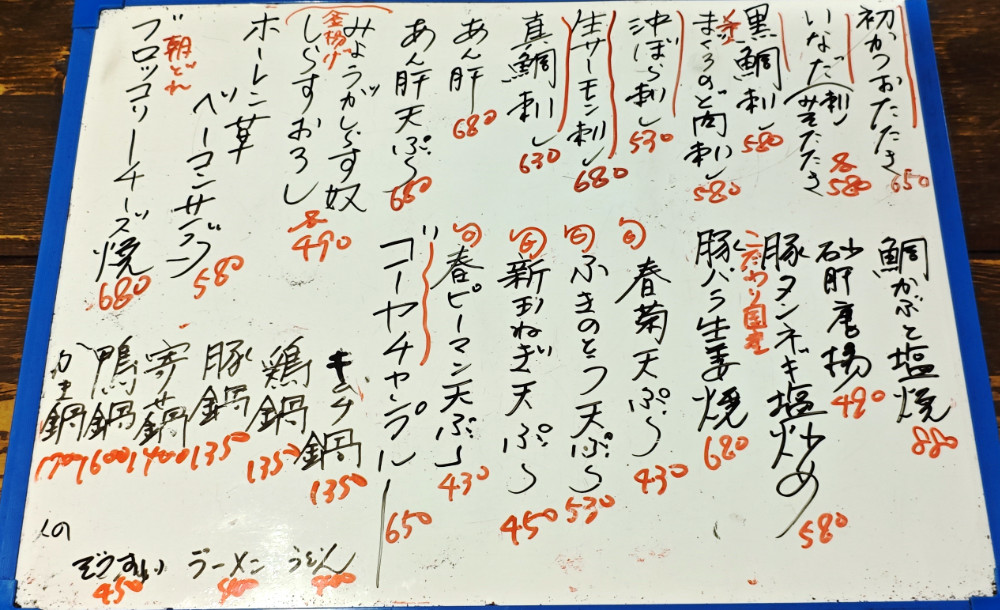 初かつおたたき 650
いなだ(刺し みそたたき 各580
黒鯛刺し 580
まぐろのど肉刺し 580
沖ぼら刺し 530
生サーモン刺し 680
真鯛刺し 630
あん肝 680
あん肝天ぷら 680
みょうがしらす奴
釜揚げ
しらすおろし 各490
ホーレン草
ベーコンサラダ 580
朝どれ
ブロッコリーチーズ焼 680
鯛かぶと塩焼 880
砂肝唐揚 490
豚タンネギ塩炒め 580
こだわり国産
豚バラ生姜焼 680
旬 春菊天ぷら 430
旬 ふきのとう天ぷら 530
旬 新玉ねぎ天ぷら 450
旬 春ピーマン天ぷら 430
ゴーヤチャンプルー 650
キムチ鍋 1350
鶏鍋 1350
豚鍋 1350
寄せ鍋 1400
鴨鍋 1600
かき鍋 1700
〆の
ぞうすい 450
ラーメン 400
うどん 400